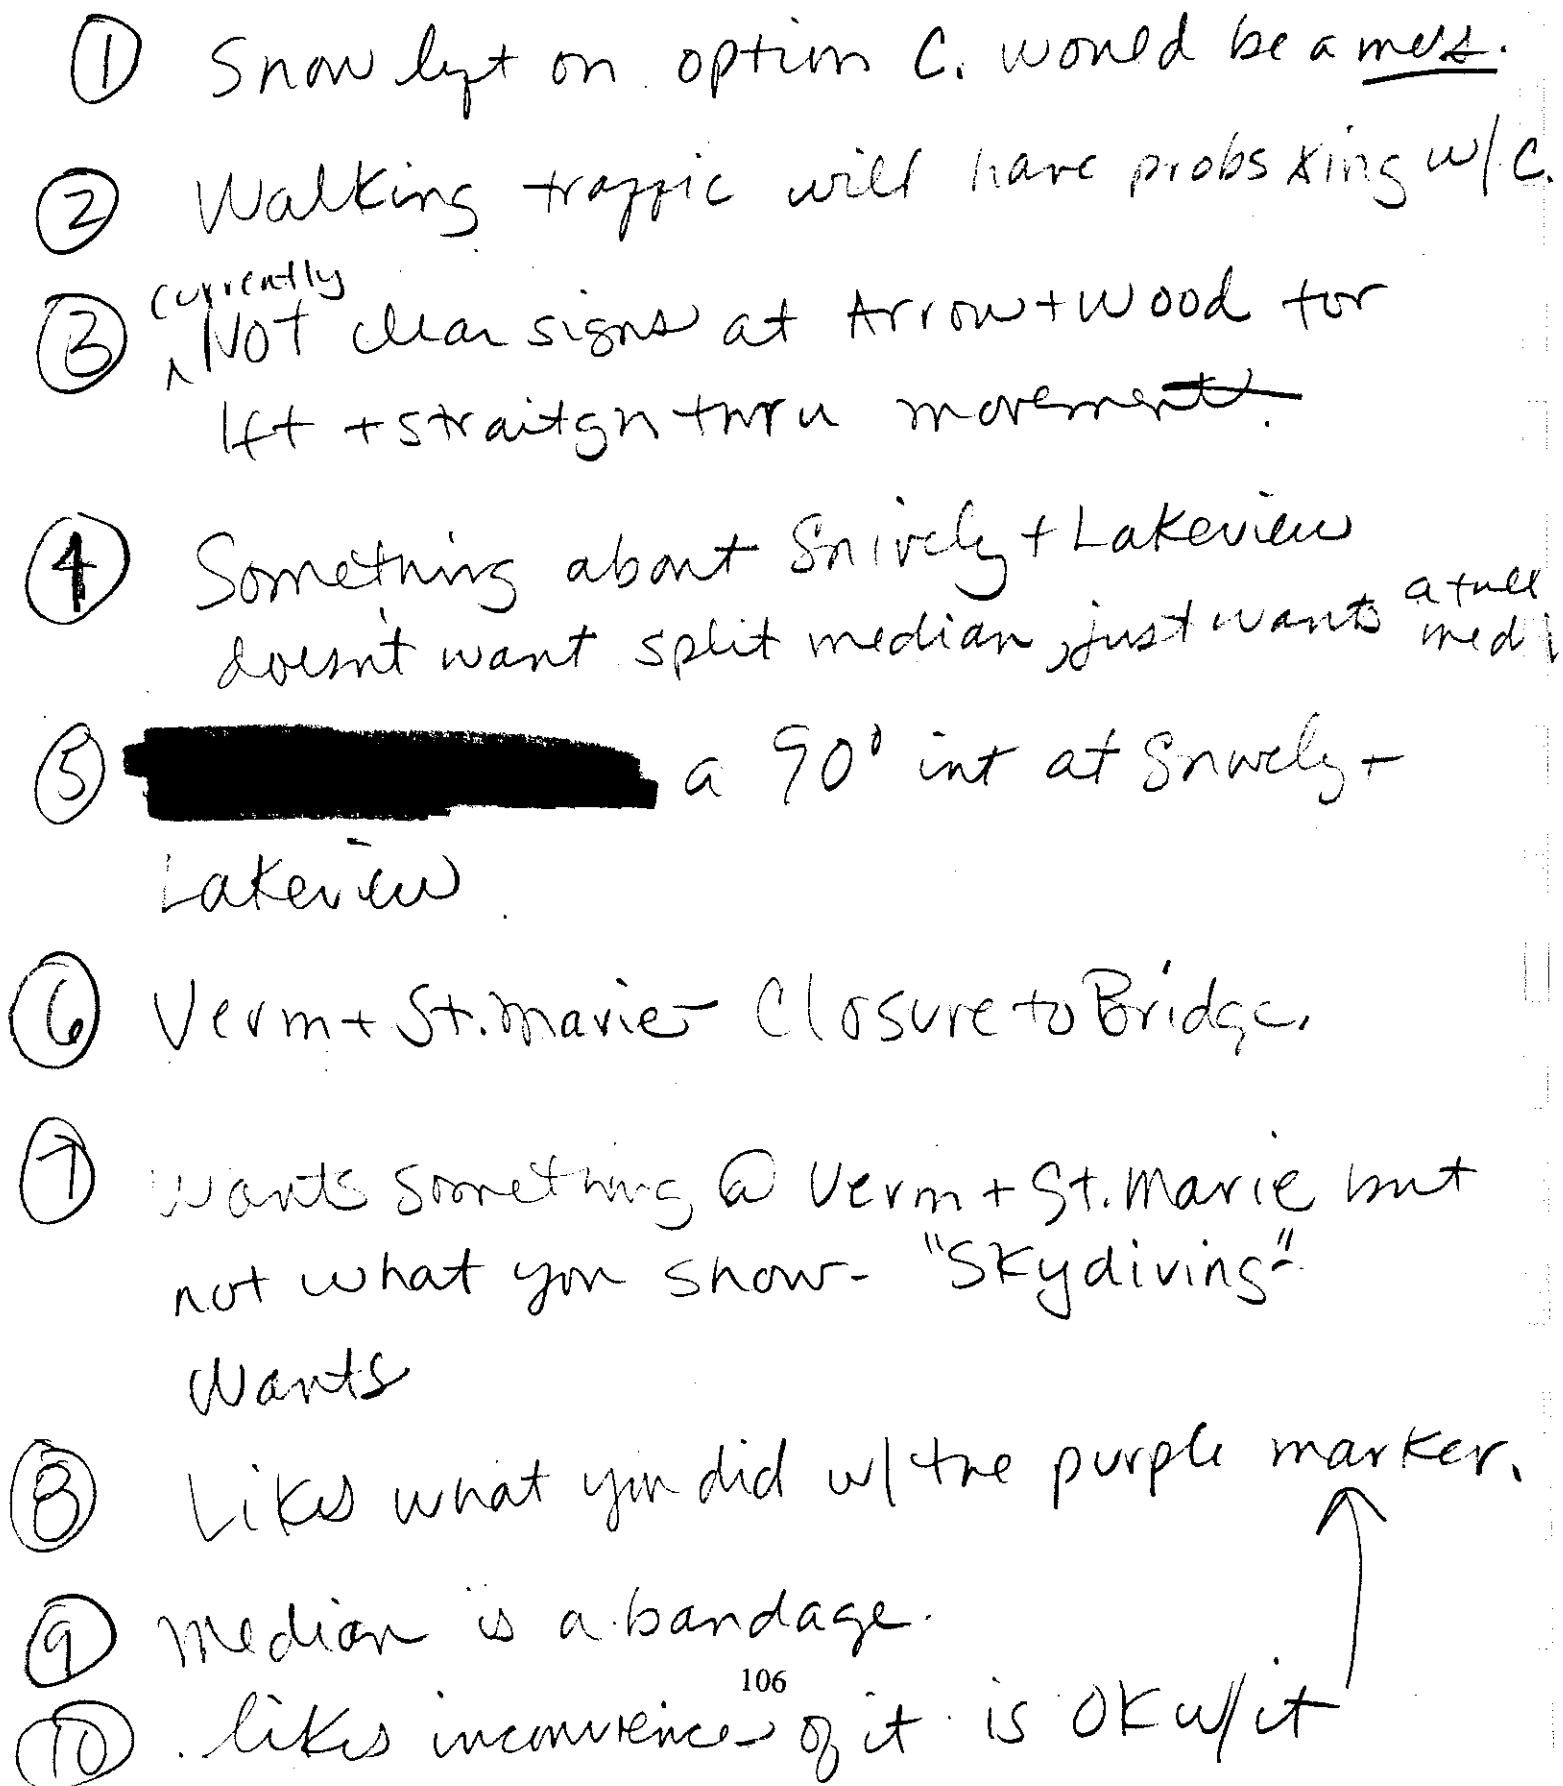 ① Snow lyt on option C. would be a mess.
② Walking traffic will have probs Xing w/ C.
currently
③ ^ Not clear signs at Arrow + Wood for
lft + straitgh thru movement.
④ Something about Snively + Lakeview
doesn't want split median, just wants a full med
⑤ a 90° int at Snively +
Lakeview
⑥ Verm + St. Marie - Closure to Bridge.
⑦ Wants something @ Verm + St. Marie but
not what you show - "Skydiving".
Wants
⑧ Likes what you did w/ the purple marker.
⑨ Median is a bandage.
106
⑩ likes inconvience of it is OK w/ it